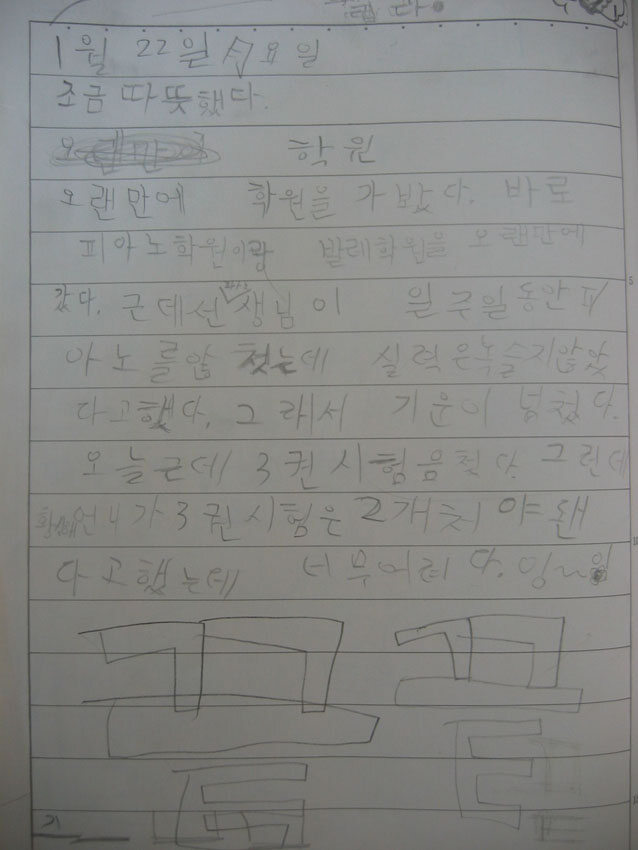 1월 22일 수요일
조금 따뜻했다.
학원
오랜만에 학원을 가 봤다. 바로
피아노학원이랑 발레학원을 오랜만에
갔다. 근데선생님이 일주일동안 피
아노를않 첫는데 실력은녹슬지않았
다고했다. 그래서 기운이 넘쳤다.
오늘근데 3권시험음첫다. 그런데
언니가 3권시험은 2개처야됀
다고했는데 너무어려다. 잉~잉